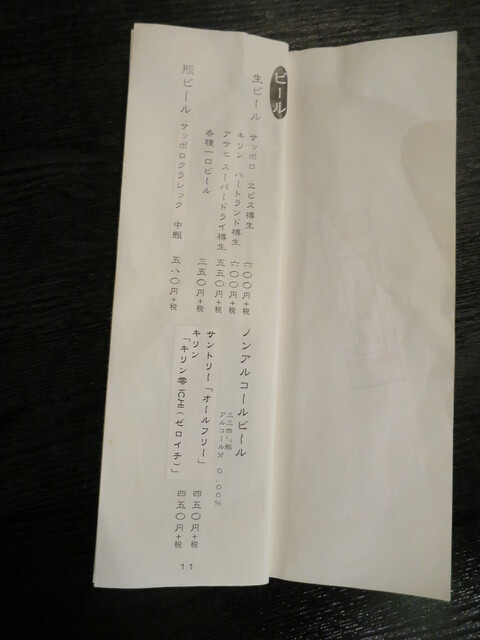 ビール
生ビール
サッポロ　ヱビス樽生　六〇〇円+税
キリン　ハートランド樽生　六〇〇円+税
アサヒスーパードライ樽生　五五〇円+税
各種一口ビール　三五〇円+税
瓶ビール
サッポロクラシック　中瓶　五八〇円+税
ノンアルコールビール
三三四㍉瓶
アルコール％　0.00％
サントリー「オールフリー」　四五〇円+税
キリン
「キリン零ICHI(ゼロイチ)」　四五〇円+税
11